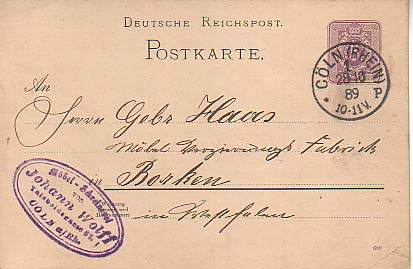 DEUTSCHE REICHSPOST.
POSTKARTE.
CÖLN (RHEIN)
1
28 10
89
P
* 10-11V.
An
Herrn Gebr Haas
Möbel Verzierungs Fabrick
in
Borken
in Westfalen
Möbel-Schreinerei
von
Johann Wolff
CÖLN a/Rh.